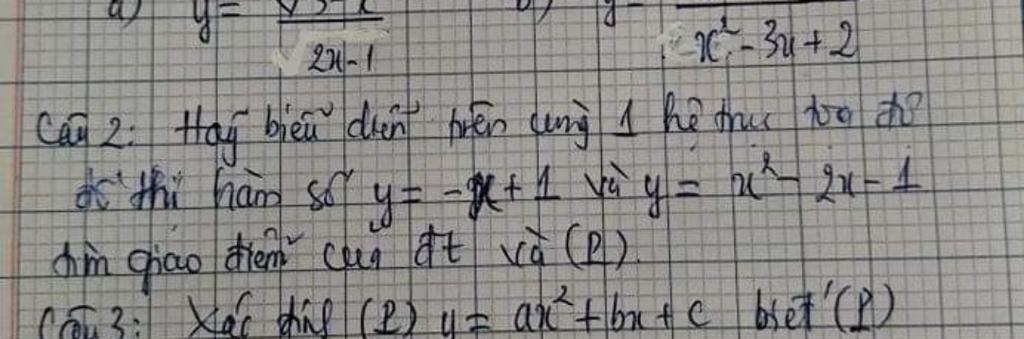 a) y = √3-x / √2x-1 b) y = / x² - 3x + 2
Câu 2: Hãy biểu diễn trên cùng 1 hệ trục tọa độ
đồ thị hàm số y = -x + 1 và y = x² - 2x - 1
tìm giao điểm của đt và (P).
Câu 3: Xác định (P) y = ax² + bx + c biết (P)